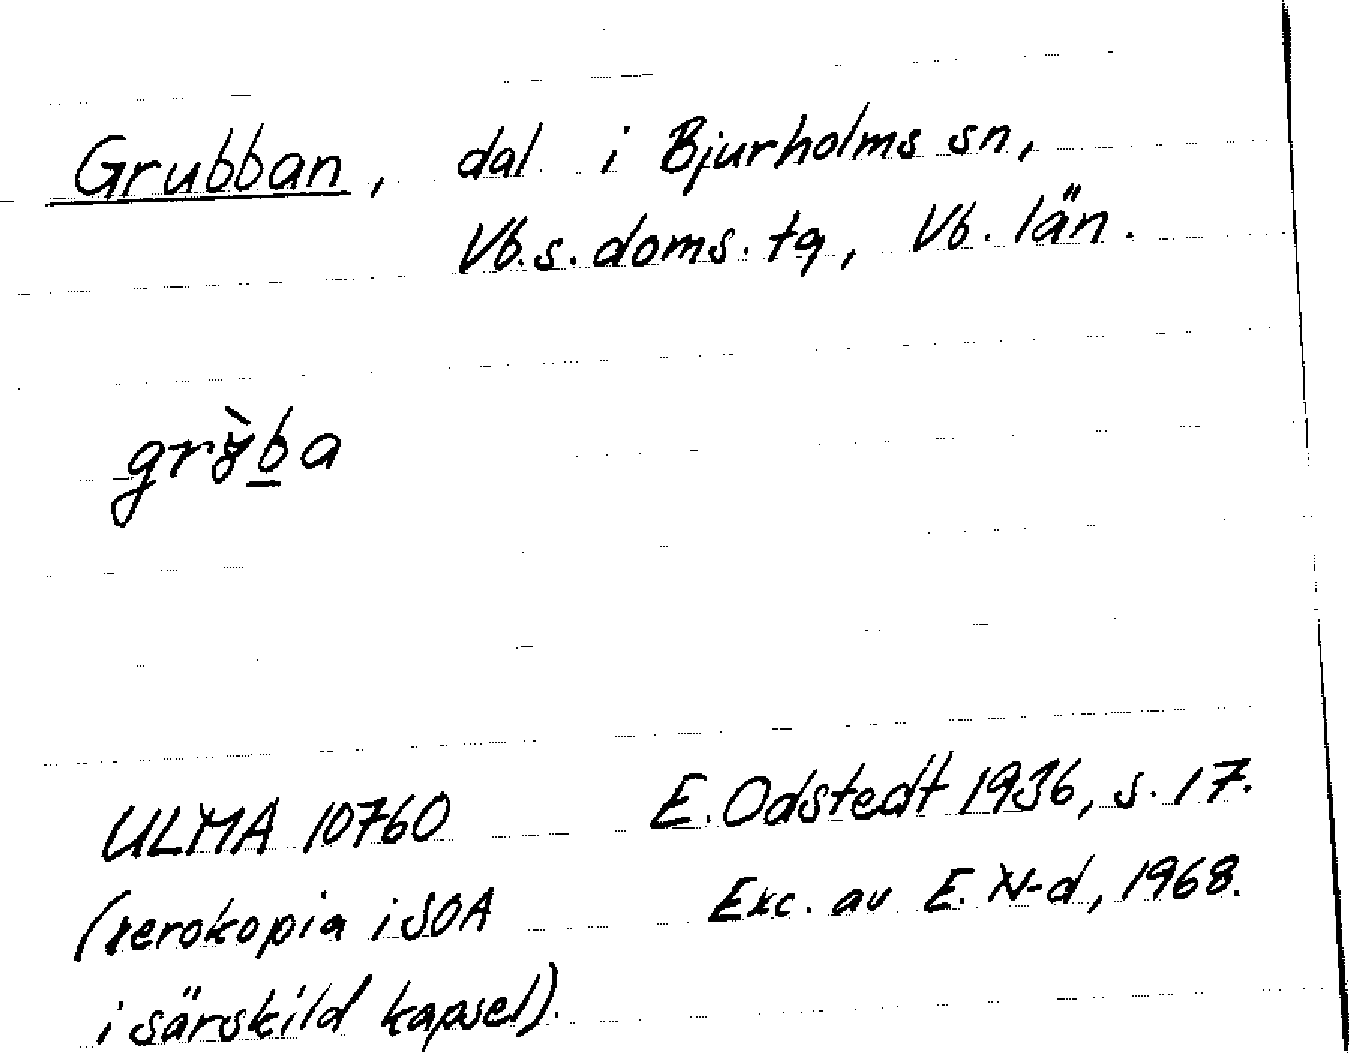 Grubban, dal i Bjurholms sn,
Vb.s. doms. tg, Vb. län.
ULMA 10760
E. Odstedt 1936, s. 17.
(xerokopia i SOA
Exc. av E. N-d, 1968.
i särskild kapsel).